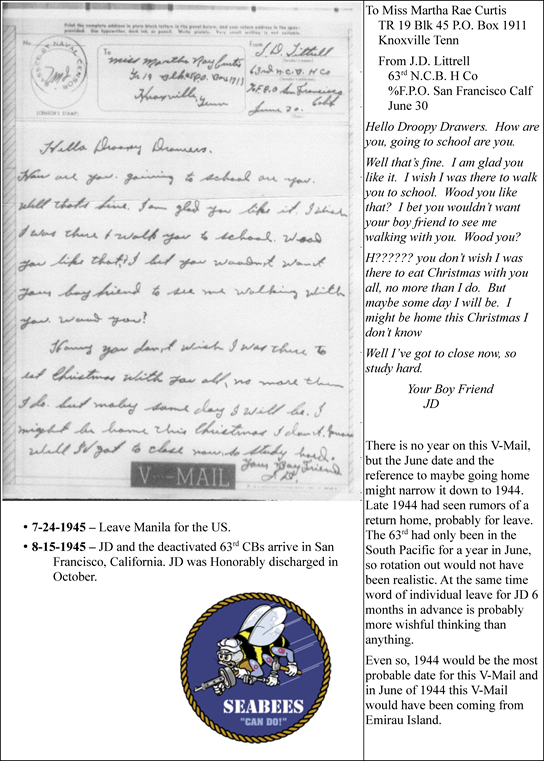 Print the complete address in plain block letters in the panel below, and your return address in the space provided. Use typewriter, dark ink, or pencil. Write plainly. Very small writing is not suitable.
No.
(CENSOR'S STAMP)
To
Miss Martha Ray Curtis
Tr 19 Blk 45 P.O. Box 1911
Knoxville,
Tenn
From
J. D. Littrell
63rd N.C.B. H Co
% F.P.O. San Francisco
Calif
June 30.
Hello Droopy Drawers.
How are you. goining to school are you.
Well thats fine. I am glad you like it. I wish
I was there to walk you to school. Wood
you like that? I bet you woodn,t want
your boy friend to see me walking with
you. Wood you?
you don,t wish I was there to
eat Christmas with you all, no more then
I do. but maby some day I will be. I
might be home this Christmas I don,t know
Well I,v got to close now. so study hard.
Your Boy Friend
J.D.
V···—MAIL
• 7-24-1945 – Leave Manila for the US.
• 8-15-1945 – JD and the deactivated 63rd CBs arrive in San
Francisco, California. JD was Honorably discharged in
October.
SEABEES
"CAN DO!"
To Miss Martha Rae Curtis
TR 19 Blk 45 P.O. Box 1911
Knoxville Tenn
From J.D. Littrell
63rd N.C.B. H Co
%F.P.O. San Francisco Calf
June 30
Hello Droopy Drawers. How are
you, going to school are you.
Well that's fine. I am glad you
like it. I wish I was there to walk
you to school. Wood you like
that? I bet you wouldn't want
your boy friend to see me
walking with you. Wood you?
H?????? you don't wish I was
there to eat Christmas with you
all, no more than I do. But
maybe some day I will be. I
might be home this Christmas I
don't know
Well I've got to close now, so
study hard.
Your Boy Friend
JD
There is no year on this V-Mail,
but the June date and the
reference to maybe going home
might narrow it down to 1944.
Late 1944 had seen rumors of a
return home, probably for leave.
The 63rd had only been in the
South Pacific for a year in June,
so rotation out would not have
been realistic. At the same time
word of individual leave for JD 6
months in advance is probably
more wishful thinking than
anything.
Even so, 1944 would be the most
probable date for this V-Mail and
in June of 1944 this V-Mail
would have been coming from
Emirau Island.